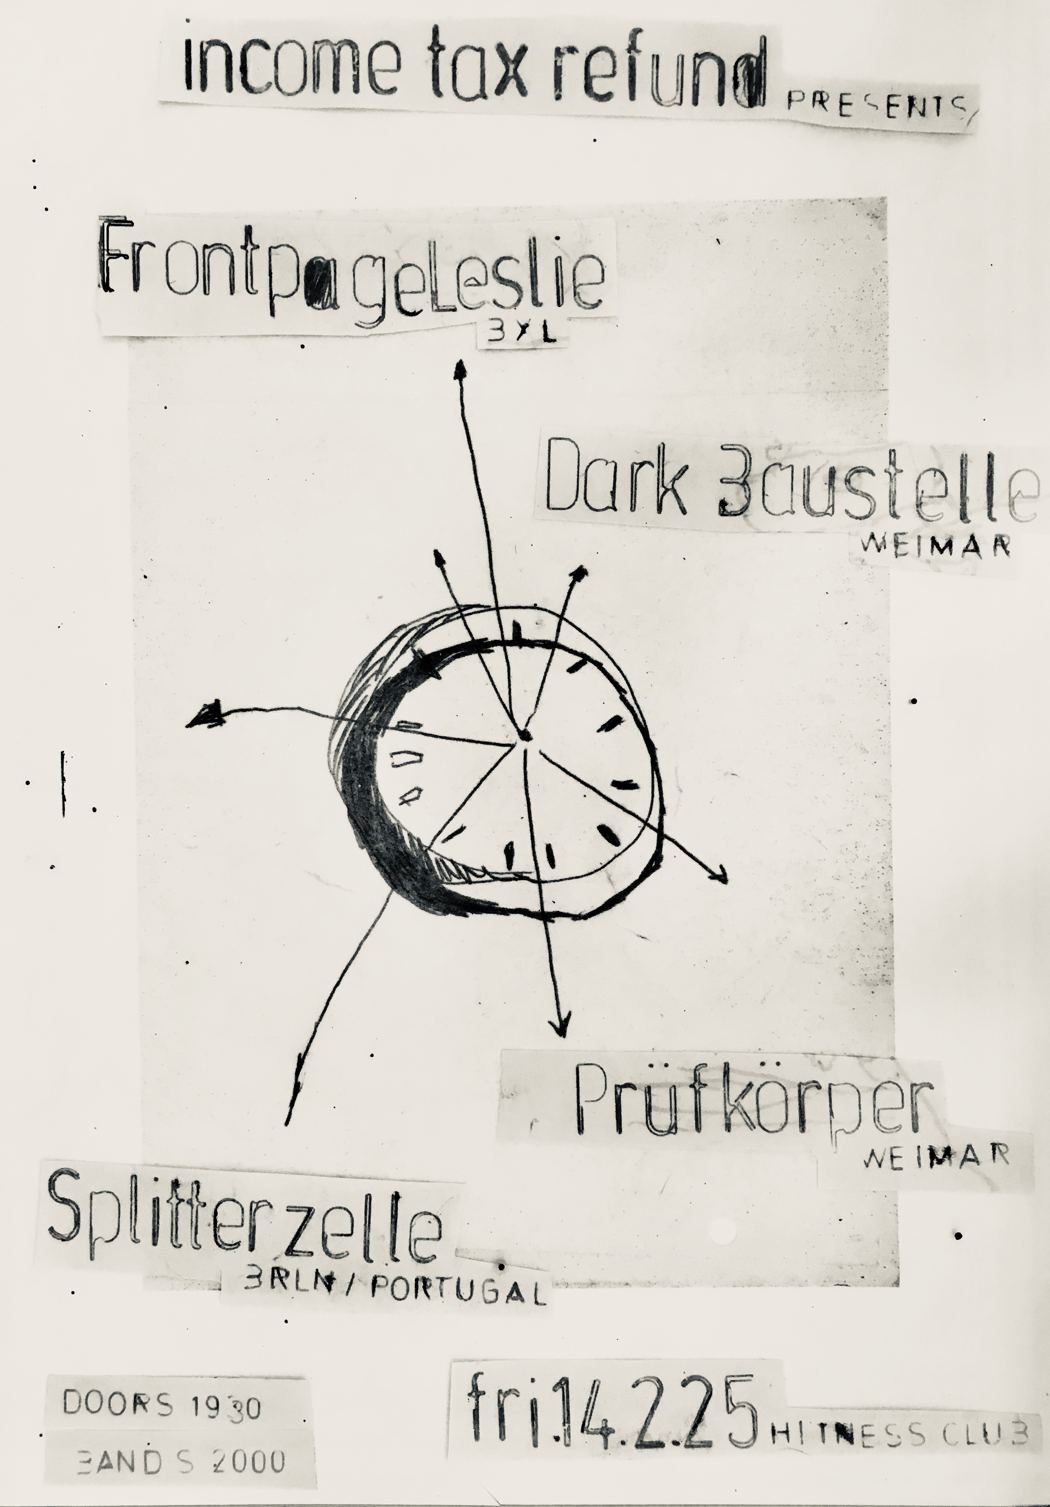 income tax refund PRESENTS/
FrontpageLeslie
BXL
Dark Baustelle
WEIMAR
Prüfkörper
WEIMAR
Splitterzelle
BRLN/PORTUGAL
DOORS 1930
BANDS 2000
fri.14.2.25 HITNESS CLUB